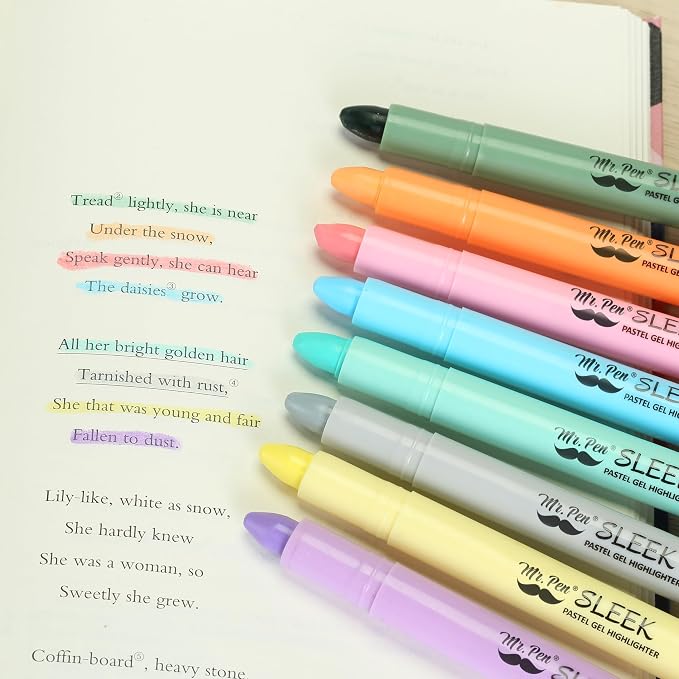 Tread② lightly, she is near
Under the snow,
Speak gently, she can hear
The daisies③ grow.
All her bright golden hair
Tarnished with rust,④
She that was young and fair
Fallen to dust.
Lily-like, white as snow,
She hardly knew
She was a woman, so
Sweetly she grew.
Coffin-board⑤, heavy stone
Mr. Pen® SLEEK
PASTEL GEL
Mr. Pen® SLEE
PASTEL GEL HIGH
Mr. Pen® SLEE
PASTEL GEL HIGHL
Mr. Pen® SLEE
PASTEL GEL HIGHLI
Mr. Pen® SLEEK
PASTEL GEL HIGHLIGHT
Mr. Pen® SLEEK
PASTEL GEL HIGHLIGHTER
Mr. Pen® SLEEK
PASTEL GEL HIGHLIGHTER
Mr. Pen® SLEEK
PASTEL GEL HIGHLIGHTER